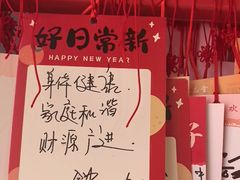 好日常新
HAPPY NEW YEAR
身体健康
家庭和谐
财源广进